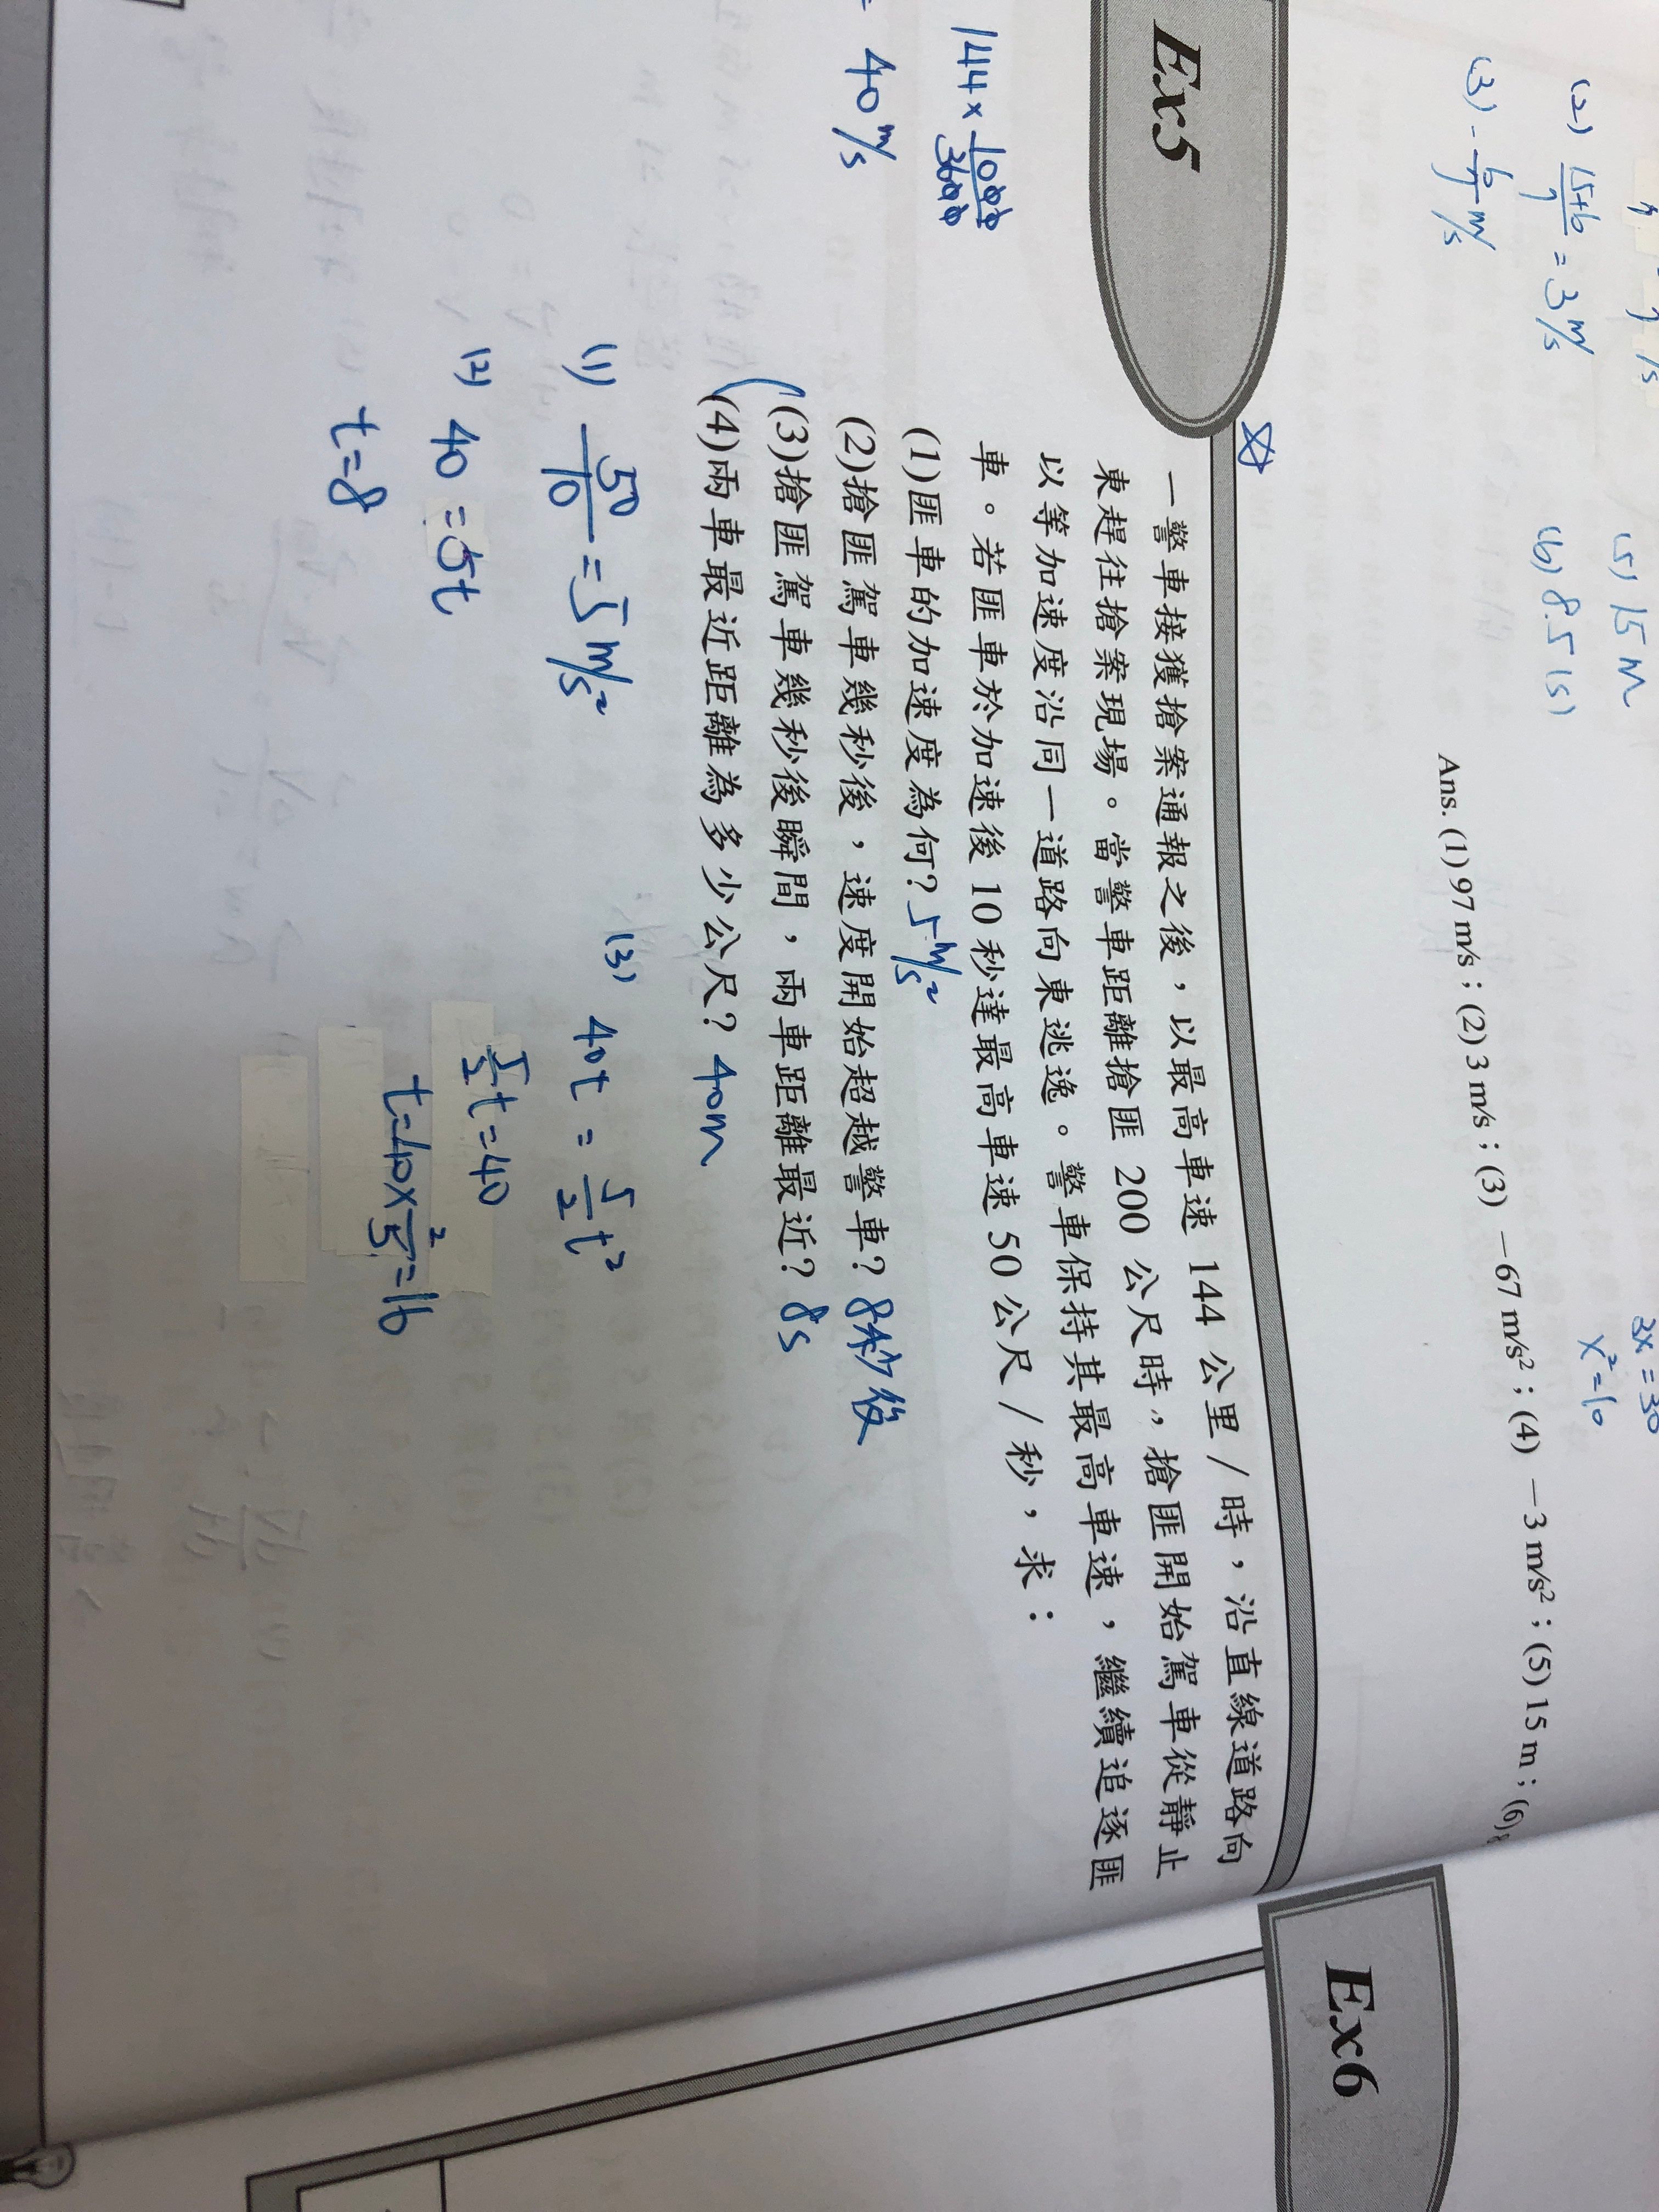 (2) 15+6/7 = 3 m/s
(3) -6/7 m/s
(5) 15 m
(6) 8.5 (s)
3x = 30
x² = 10
Ans. (1) 97 m/s；(2) 3 m/s；(3) －67 m/s²；(4) －3 m/s²；(5) 15 m；(6)
Ex5
一警車接獲搶案通報之後，以最高車速 144 公里／時，沿直線道路向
東趕往搶案現場。當警車距離搶匪 200 公尺時，搶匪開始駕車從靜止
以等加速度沿同一道路向東逃逸。警車保持其最高車速，繼續追逐匪
車。若匪車於加速後 10 秒達最高車速 50 公尺／秒，求：
(1)匪車的加速度為何？5 m/s²
(2)搶匪駕車幾秒後，速度開始超越警車？8秒後
(3)搶匪駕車幾秒後瞬間，兩車距離最近？8s
(4)兩車最近距離為多少公尺？40m
144 × 1000/3600
= 40 m/s
(1) 50/10 = 5 m/s²
(2) 40 = 5t
t=8
(3) 40t = 5/2 t²
5/2 t = 40
t=40×2/5=16
Ex6